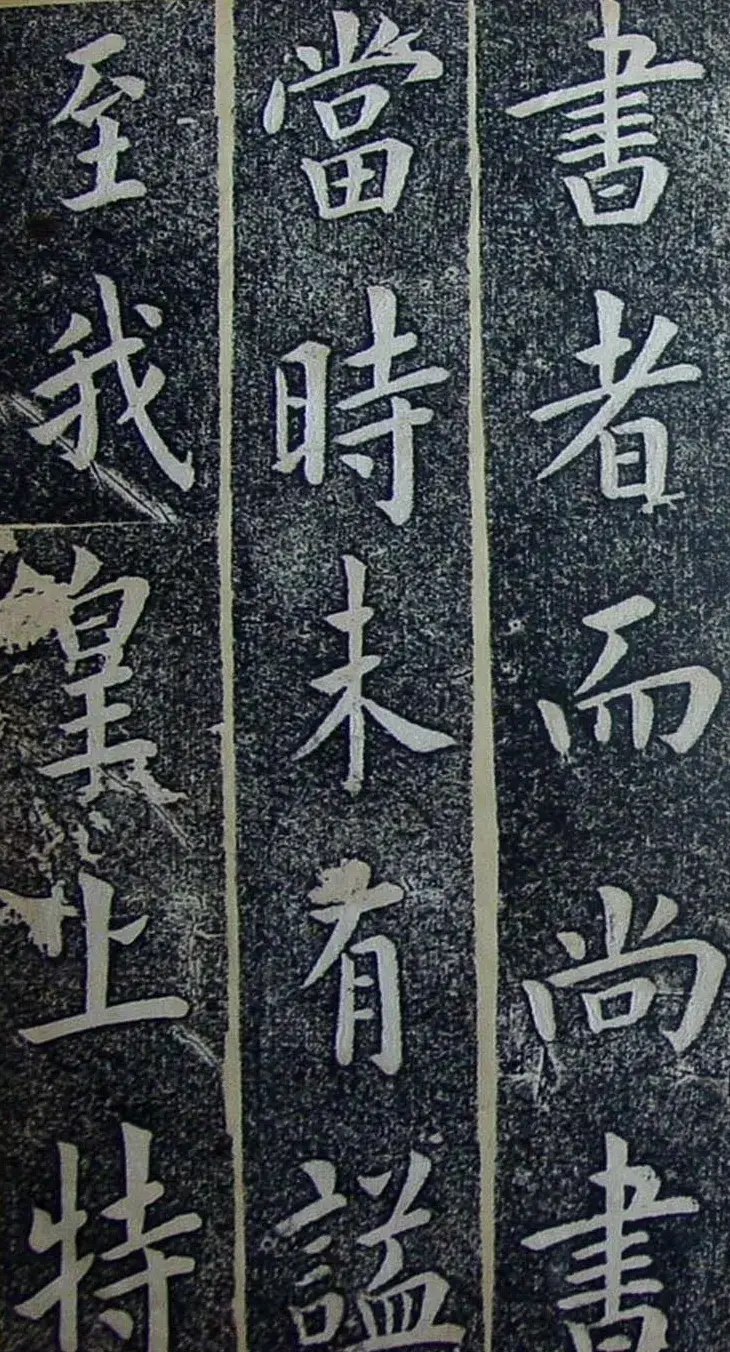 書者而尚書
當時未有謚
至我皇上特